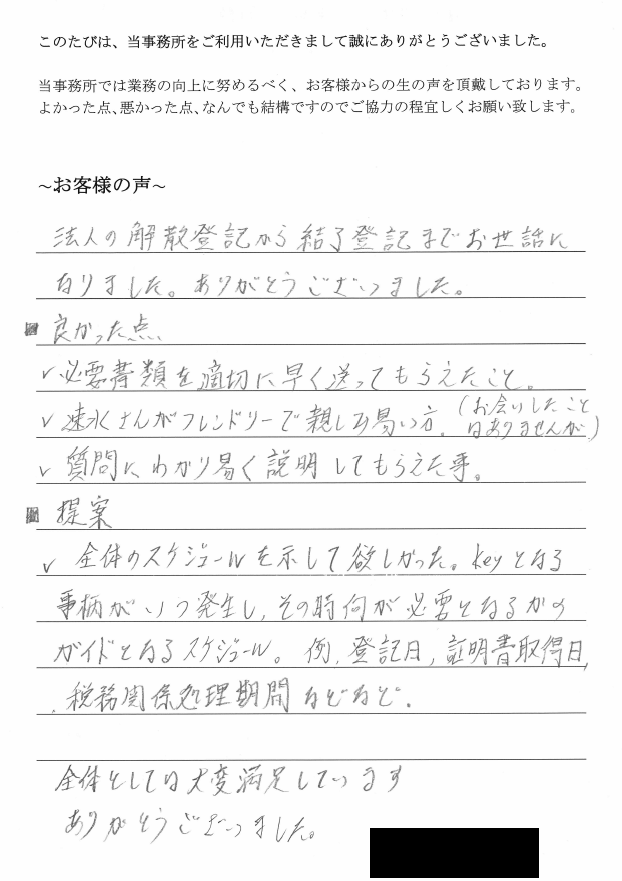 このたびは、当事務所をご利用いただきまして誠にありがとうございました。
当事務所では業務の向上に努めるべく、お客様からの生の声を頂戴しております。
よかった点、悪かった点、なんでも結構ですのでご協力の程宜しくお願い致します。
~お客様の声~
法人の解散登記から結了登記までお世話に
なりました。ありがとうございました。
良かった点、
✓必要書類を適切に早く送ってもらえたこと。
✓速水さんがフレンドリーで親しみ易い方。(お会いしたこと
はありませんが)
✓質問に、わかり易く説明してもらえた事。
提案
✓全体のスケジュールを示して欲しかった。keyとなる
事柄がいつ発生し、その時何が必要となるかの
ガイドとなるスケジュール。例、登記日、証明書取得日、
税務関係処理期間などなど。
全体としては大変満足しています
ありがとうございました。